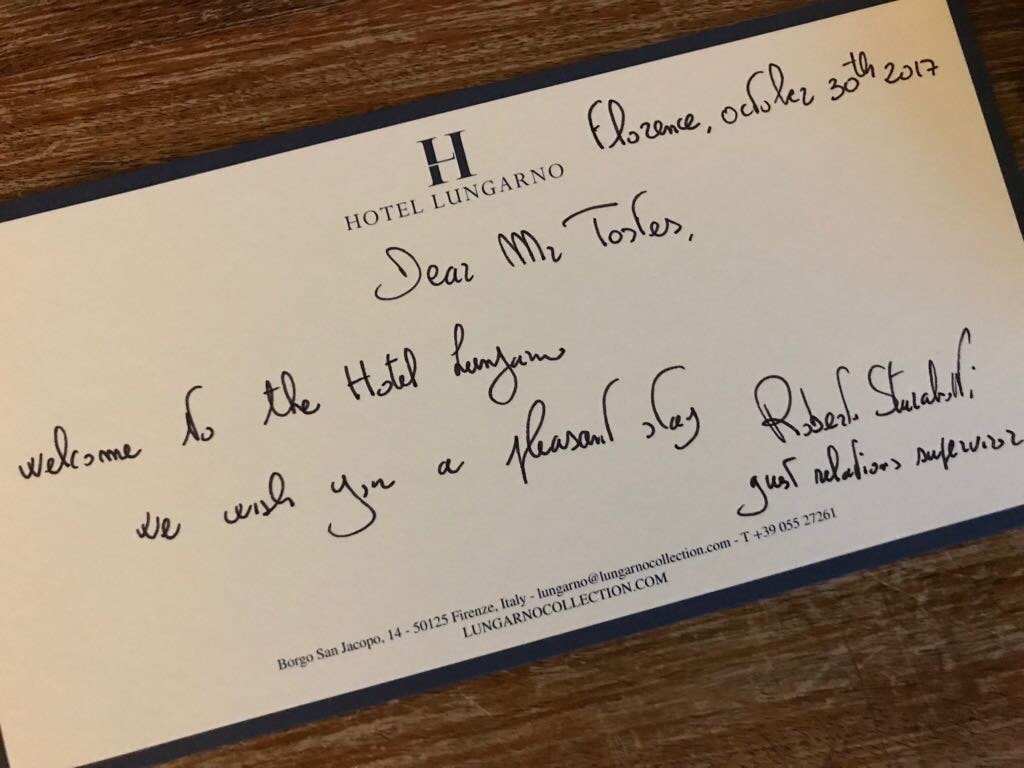 Florence, october 30th 2017
H
HOTEL LUNGARNO
Dear Mr Tostes,
welcome to the Hotel Lungarno
we wish you a pleasant stay
Roberto
guest relations supervisor
Borgo San Jacopo, 14 - 50125 Firenze, Italy - lungarno@lungarnocollection.com - T +39 055 27261
LUNGARNOCOLLECTION.COM